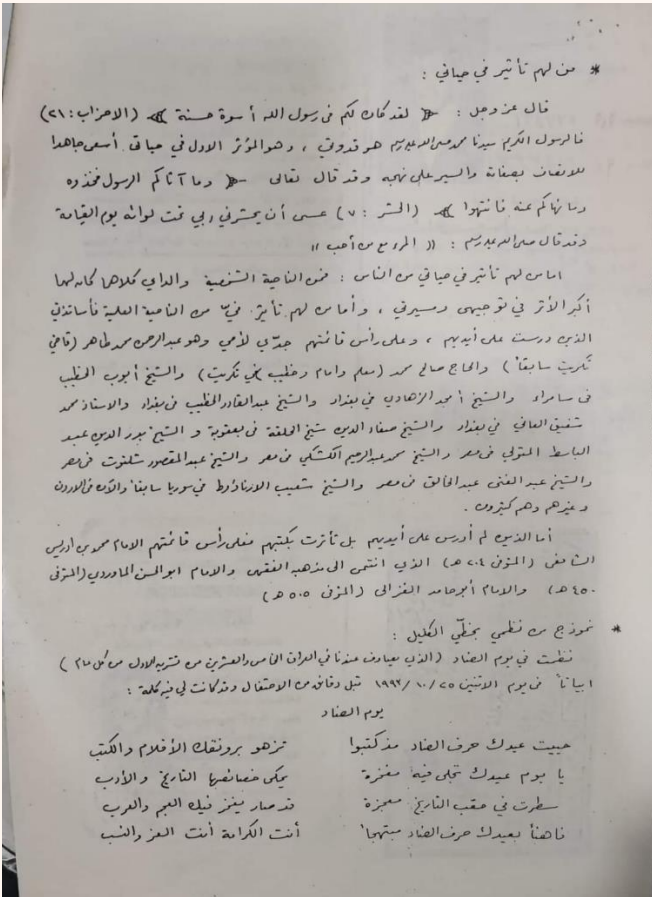 * من لهم تأثير في حياتي :
قال عز وجل : ﴿ لقد كان لكم في رسول الله أسوة حسنة ﴾ (الاحزاب : ٢١)
فالرسول الكريم سيدنا محمد صلى الله عليه وسلم هو قدوتي ، وهو المؤثر الاول في حياتي أسعى جاهدا
للاتصاف بصفاته والسير على نهجه وقد قال تعالى ﴿ وما آتاكم الرسول فخذوه
وما نهاكم عنه فانتهوا ﴾ (الحشر : ٧) عسى أن يحشرني ربي تحت لوائه يوم القيامة
وقد قال صلى الله عليه وسلم : (( المرء مع من أحب ))
اما من لهم تأثير في حياتي من الناس : فمن الناحية الشخصية والداي كلاهما كان لهما
أكبر الأثر في توجيهي ومسيرتي ، وأما من لهم تأثير فيّ من الناحية العلمية فأساتذتي
الذين درست على أيديهم ، وعلى رأس قائمتهم جدّي لأمي وهو عبدالرحمن محمد طاهر (قاضي
تكريت سابقاً) والحاج صالح محمد (معلم وامام وخطيب في تكريت) والشيخ أيوب الخطيب
في سامراء والشيخ أمجد الزهاوي في بغداد والشيخ عبدالقادر الخطيب في بغداد والاستاذ محمد
شفيق العاني في بغداد والشيخ صفاء الدين شيخ الحلقة في بعقوبة والشيخ بدر الدين عبد
الباسط المتولي في مصر والشيخ محمد عبدالرحيم الكشكي في مصر والشيخ عبد المقصود شلتوت في مصر
والشيخ عبد الغني عبد الخالق في مصر والشيخ شعيب الارناؤط في سوريا سابقاً والآن في الاردن
وغيرهم وهم كثيرون .
أما الذين لم أدرس على أيديهم بل تأثرت بكتبهم فعلى رأس قائمتهم الامام محمد بن ادريس
الشافعي (المتوفى ٢٠٤ هـ) الذي انتمي الى مذهبه الفقهي والامام ابو الحسن الماوردي (المتوفى
٤٥٠ هـ) والامام أبو حامد الغزالي (المتوفى ٥٠٥ هـ)
* نموذج من نظمي بخطّي الكليل :
نظمت في يوم الضاد (الذي يصادف عندنا في العراق الخامس والعشرين من تشرين الاول من كل عام)
ابياتاً في يوم الاثنين ٢٥/١٠/١٩٩٣ قبل دقائق من الاحتفال وقد كانت لي فيه كلمة :
يوم الضاد
حييت عيدك حرف الضاد مذ كتبوا تزهو برونقك الأقلام والكتب
يا يوم عيدك تجلى فيه مفخرة يحكى خصائصها التاريخ والأدب
سطرت في حقب التاريخ معجزة قد صار يفخر فيك العجم والعرب
فاهنأ بعيدك حرف الضاد مبتهجا أنت الكرامة أنت العز والنسب